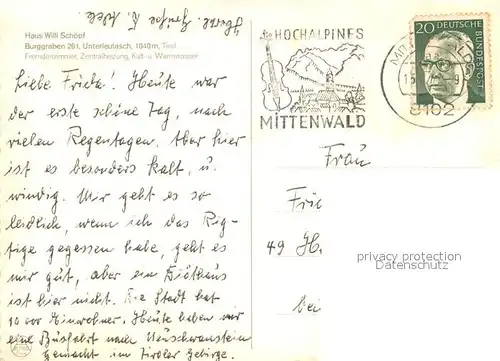 Herzl. Grüße E. Adele
Haus Willi Schöpf
Burggraben 261, Unterleutasch, 1040 m, Tirol
Fremdenzimmer, Zentralheizung, Kalt- u. Warmwasser
Liebe Frieda! Heute war
der erste schöne Tag, nach
vielen Regentagen. Aber hier
ist es besonders kalt, u.
windig. Mir geht es so
leidlich, wenn ich das Rig-
tige gegessen habe, geht es
mir gut, aber ein Diäthaus
ist hier nicht. Die Stadt hat
10 000 Einwohner. Heute haben wir
eine Busfahrt nach Neuschwanstein
gemacht im Tiroler Gebirge.
HOCHALPINES
MITTENWALD
20 DEUTSCHE
BUNDESPOST
8102
Frau
49 H.
bei
privacy protection
Datenschutz